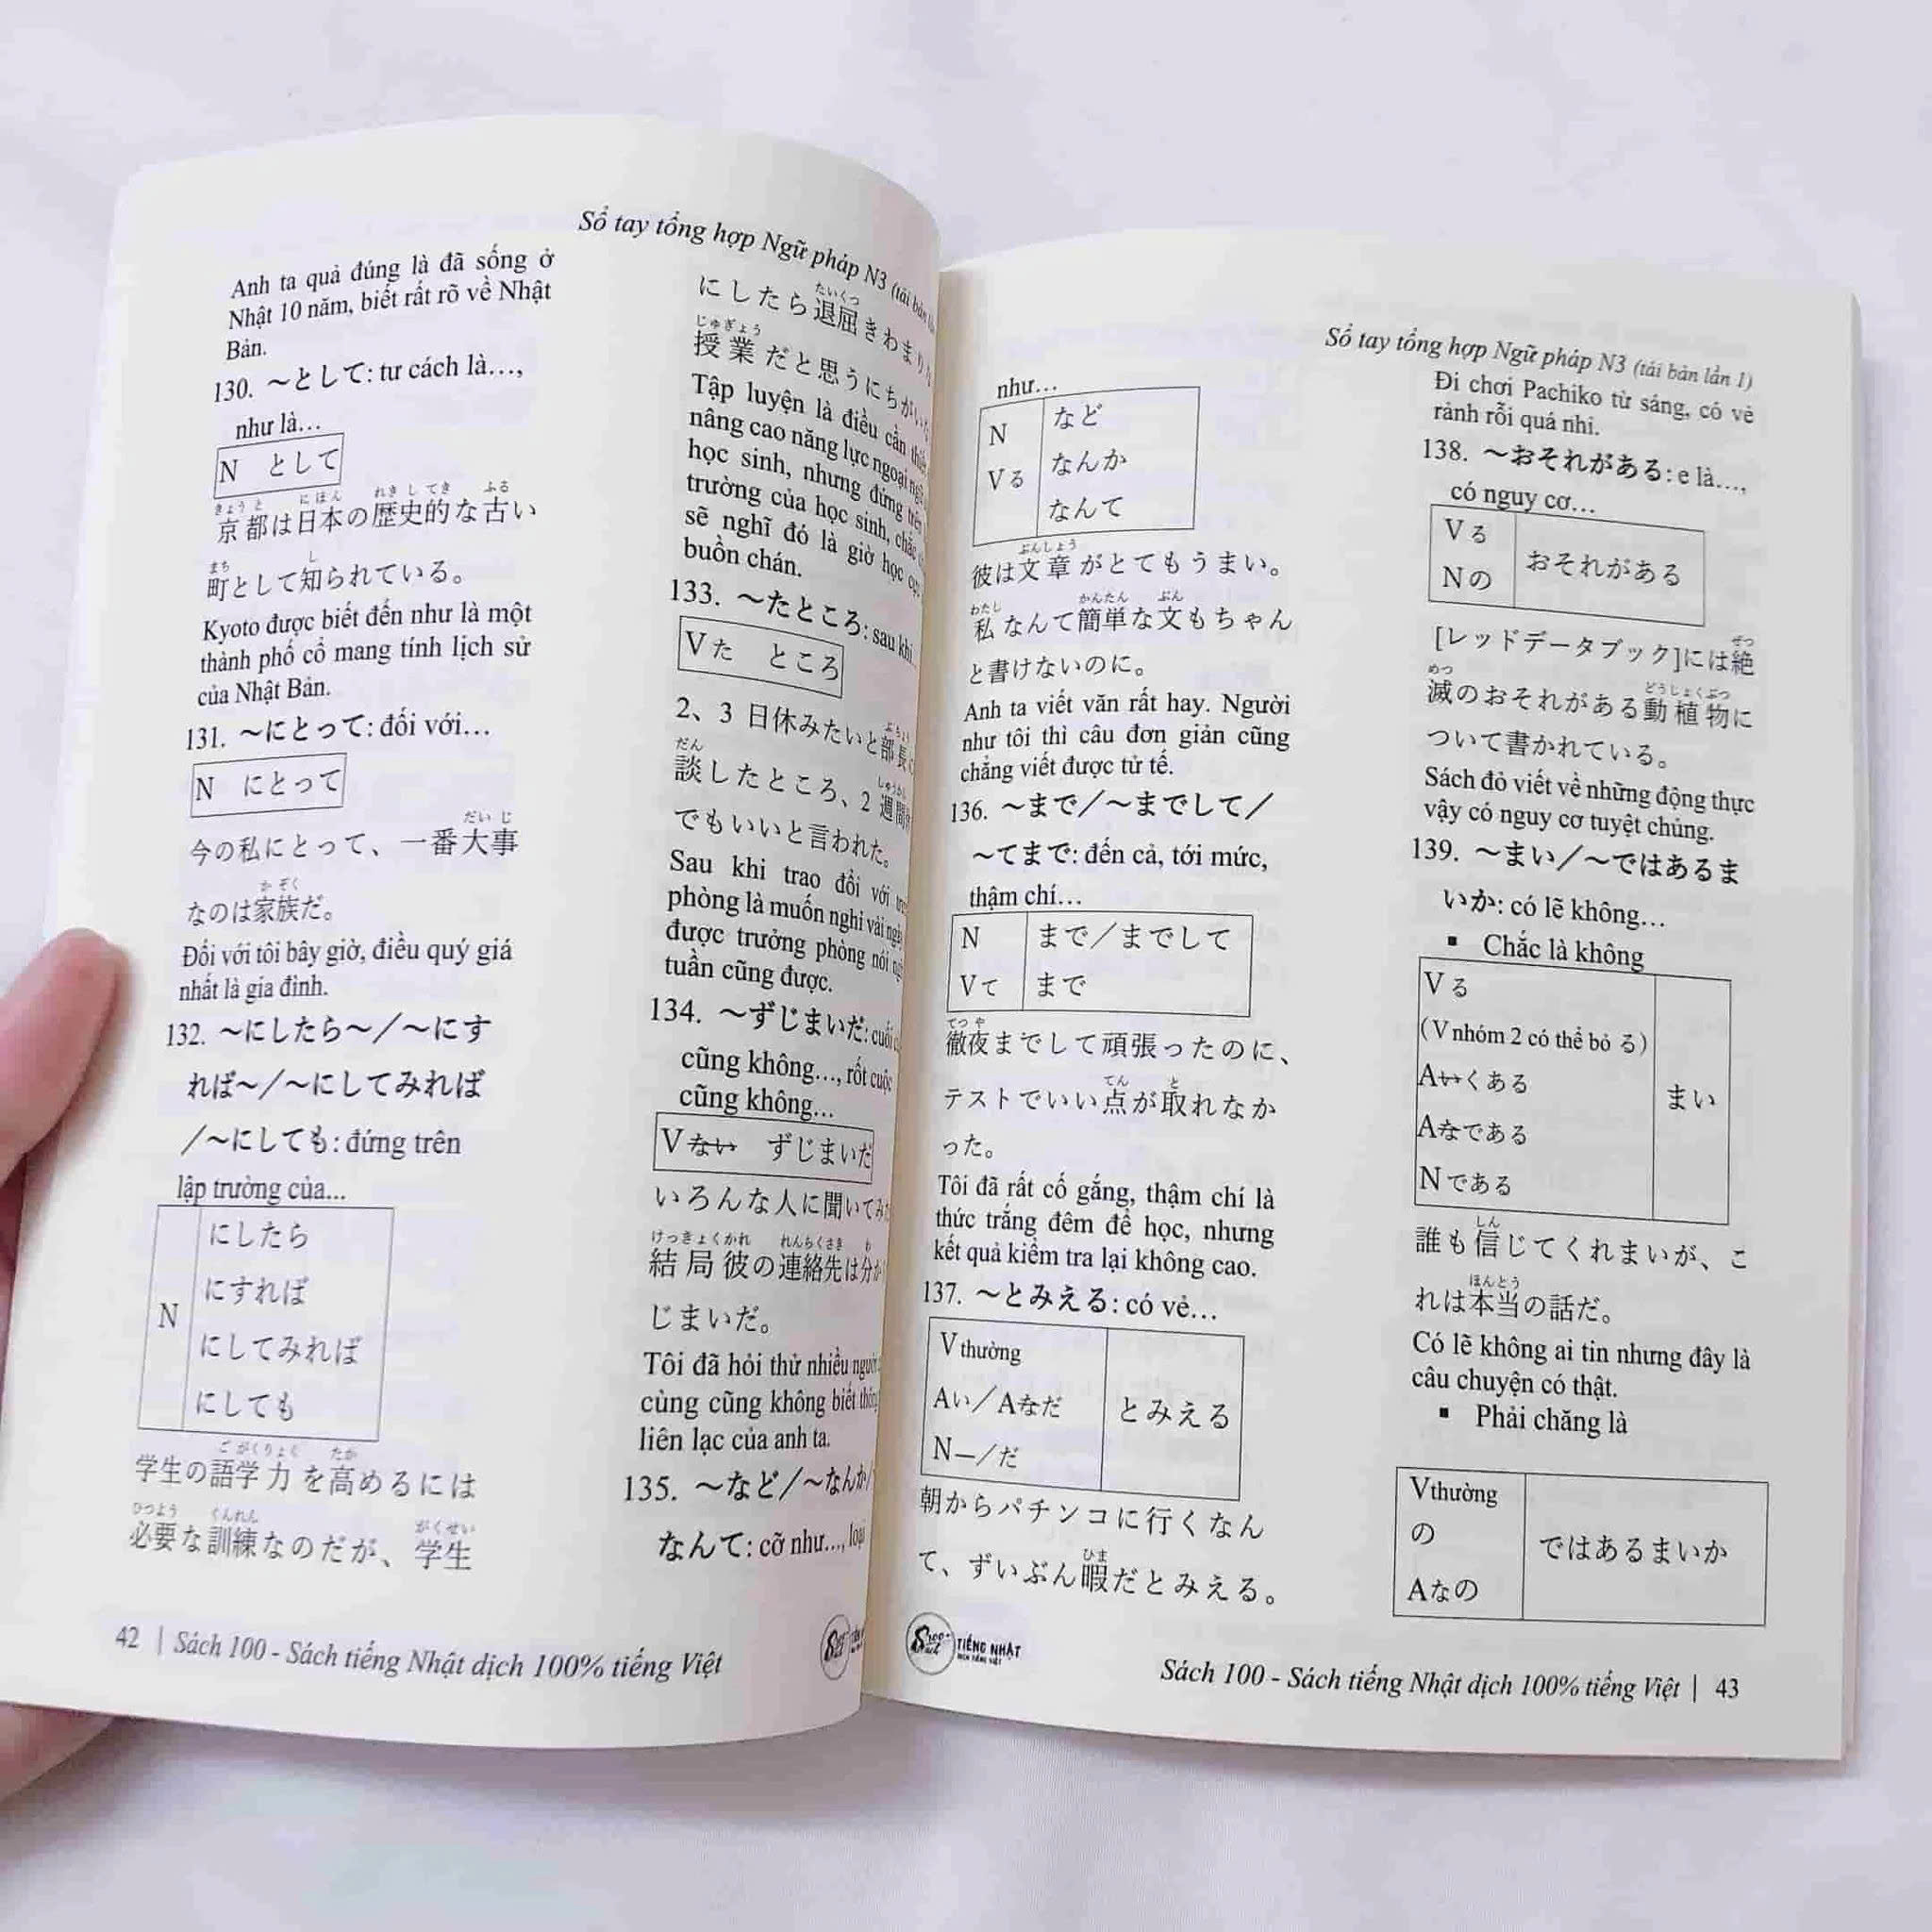 Sổ tay tổng hợp Ngữ pháp N3 (tái bản
Anh ta quả đúng là đã sống ở
Nhật 10 năm, biết rất rõ về Nhật
Bản.
130. ～として: tư cách là…,
như là…
N として
きょうと にほん れきしてき ふる
京都は日本の歴史的な古い
まち し
町として知られている。
Kyoto được biết đến như là một
thành phố cổ mang tính lịch sử
của Nhật Bản.
131. ～にとって: đối với…
N にとって
だいじ
今の私にとって、一番大事
かぞく
なのは家族だ。
Đối với tôi bây giờ, điều quý giá
nhất là gia đình.
132. ～にしたら～／～にす
れば～／～にしてみれば
／～にしても: đứng trên
lập trường của...
にしたら
にすれば
N
にしてみれば
にしても
ごがくりょく たか
学生の語学力を高めるには
ひつよう くんれん がくせい
必要な訓練なのだが、学生
たいくつ
にしたら退屈きわまり
じゅぎょう
授業だと思うにちがい
Tập luyện là điều cần
nâng cao năng lực ngoại
học sinh, nhưng đứng trên
trường của học sinh, chắc
sẽ nghĩ đó là giờ học
buồn chán.
133. ～たところ: sau khi
Vた ところ
ぶちょう
2、3日休みたいと部長
だん しゅうかん
談したところ、2週間
でもいいと言われた。
Sau khi trao đổi với
phòng là muốn nghỉ vài
được trưởng phòng nói
tuần cũng được.
134. ～ずじまいだ: cuối
cũng không…, rốt cuộc
cũng không…
Vない ずじまいだ
いろんな人に聞いてみ
けっきょくかれ れんらくさき わ
結局彼の連絡先は分か
じまいだ。
Tôi đã hỏi thử nhiều
cùng cũng không biết
liên lạc của anh ta.
135. ～など／～なんか
なんて: cỡ như..., loại
42 | Sách 100 - Sách tiếng Nhật dịch 100% tiếng Việt
Sổ tay tổng hợp Ngữ pháp N3 (tái bản lần 1)
như…
N など
Vる なんか
なんて
ぶんしょう
彼は文章がとてもうまい。
わたし かんたん ぶん
私なんて簡単な文もちゃん
と書けないのに。
Anh ta viết văn rất hay. Người
như tôi thì câu đơn giản cũng
chẳng viết được tử tế.
136. ～まで／～までして／
～てまで: đến cả, tới mức,
thậm chí…
N まで／までして
Vて まで
てつや
徹夜までして頑張ったのに、
てん と
テストでいい点が取れなか
った。
Tôi đã rất cố gắng, thậm chí là
thức trắng đêm để học, nhưng
kết quả kiểm tra lại không cao.
137. ～とみえる: có vẻ…
V thường
Aい／Aなだ とみえる
N―／だ
朝からパチンコに行くなん
ひま
て、ずいぶん暇だとみえる。
Đi chơi Pachiko từ sáng, có vẻ
rảnh rỗi quá nhỉ.
138. ～おそれがある: e là…,
có nguy cơ…
Vる
おそれがある
Nの
ぜつ
[レッドデータブック]には絶
めつ どうしょくぶつ
滅のおそれがある動植物に
ついて書かれている。
Sách đỏ viết về những động thực
vậy có nguy cơ tuyệt chủng.
139. ～まい／～ではあるま
いか: có lẽ không…
▪ Chắc là không
Vる
(V nhóm 2 có thể bỏ る)
Aいくある
まい
Aなである
Nである
しん
誰も信じてくれまいが、こ
ほんとう
れは本当の話だ。
Có lẽ không ai tin nhưng đây là
câu chuyện có thật.
▪ Phải chăng là
Vthường
の ではあるまいか
Aなの
TIẾNG NHẬT
Sách 100 - Sách tiếng Nhật dịch 100% tiếng Việt | 43